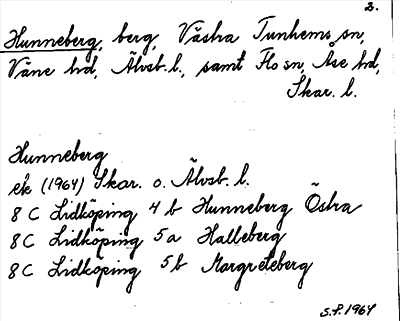 2.
Hunneberg, berg, Västra Tunhems sn,
Väne hd, Älvsb. l., samt Flo sn, Åse hd,
Skar. l.
Hunneberg
ek (1964) Skar. o. Älvsb. l.
8 C Lidköping 4 b Hunneberg Östra
8 C Lidköping 5 a Halleberg
8 C Lidköping 5 b Margreteberg
S.F. 1964